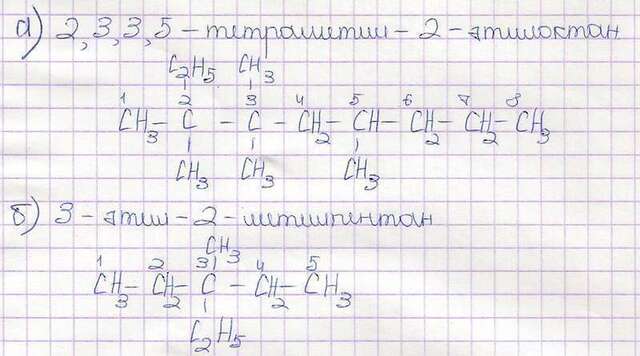 а) 2,3,3,5-тетраметил-2-этилоктан
C2H5 CH3
1 2 3 4 5 6 7 8
CH3-C-C-CH2-CH-CH2-CH2-CH3
CH3 CH3 CH3
б) 3-этил-2-метилпентан
CH3
1 2 3 4 5
CH3-CH2-C-CH2-CH3
C2H5